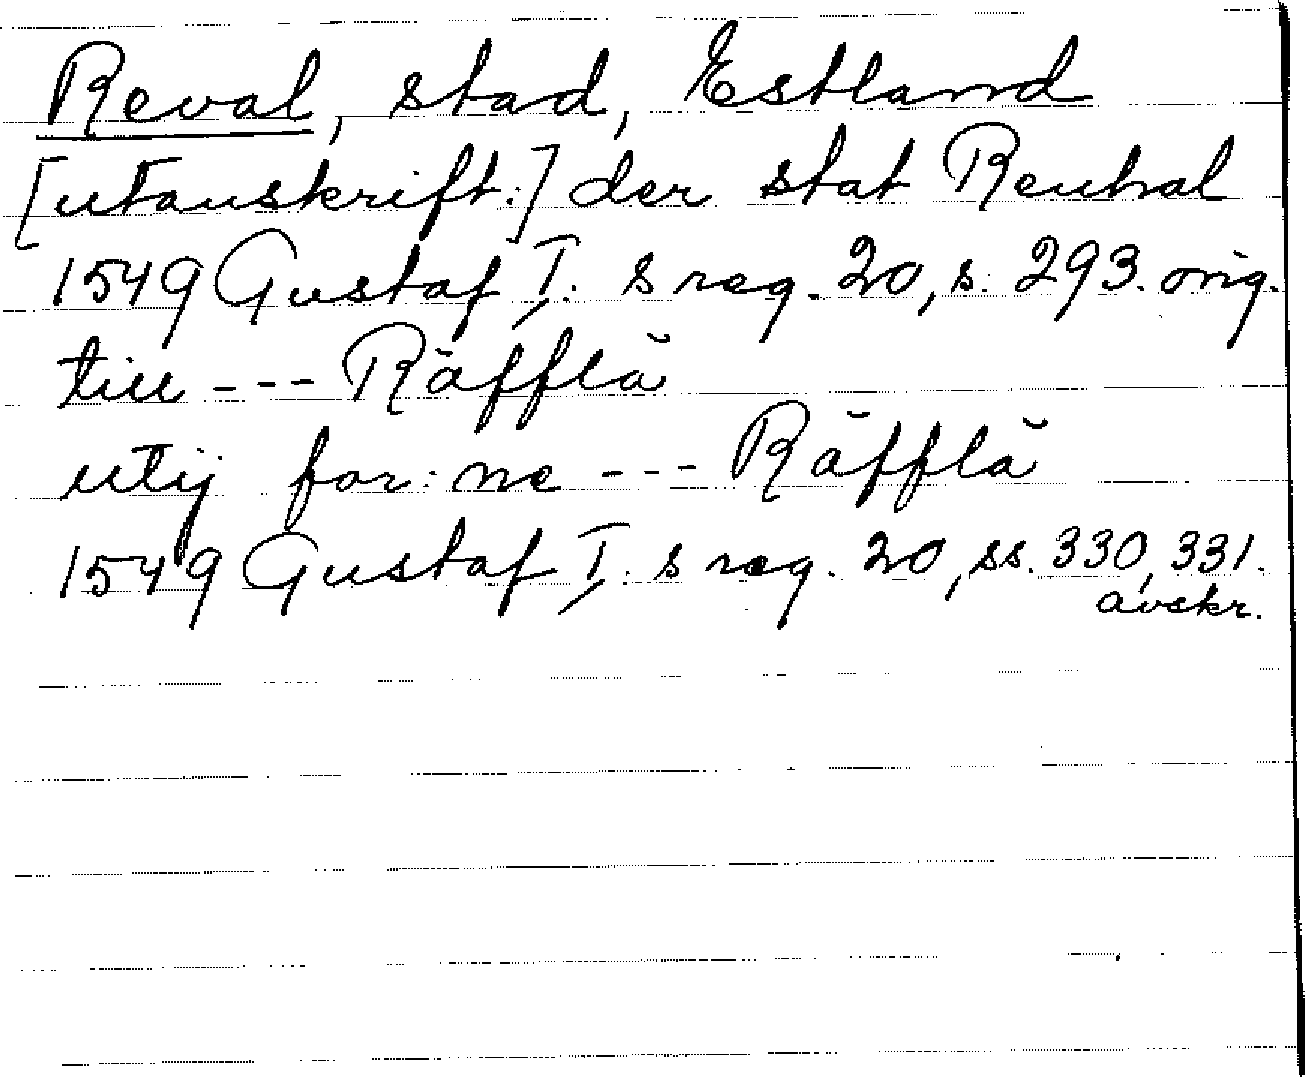 Reval, stad, Estland
[utanskrift:] der stat Reuhal
1549 Gustaf I:s reg. 20, s. 293. orig.
till --- Räfflä
utij for:ne --- Räfflä
1549 Gustaf I:s reg. 20, ss. 330, 331.
avskr.